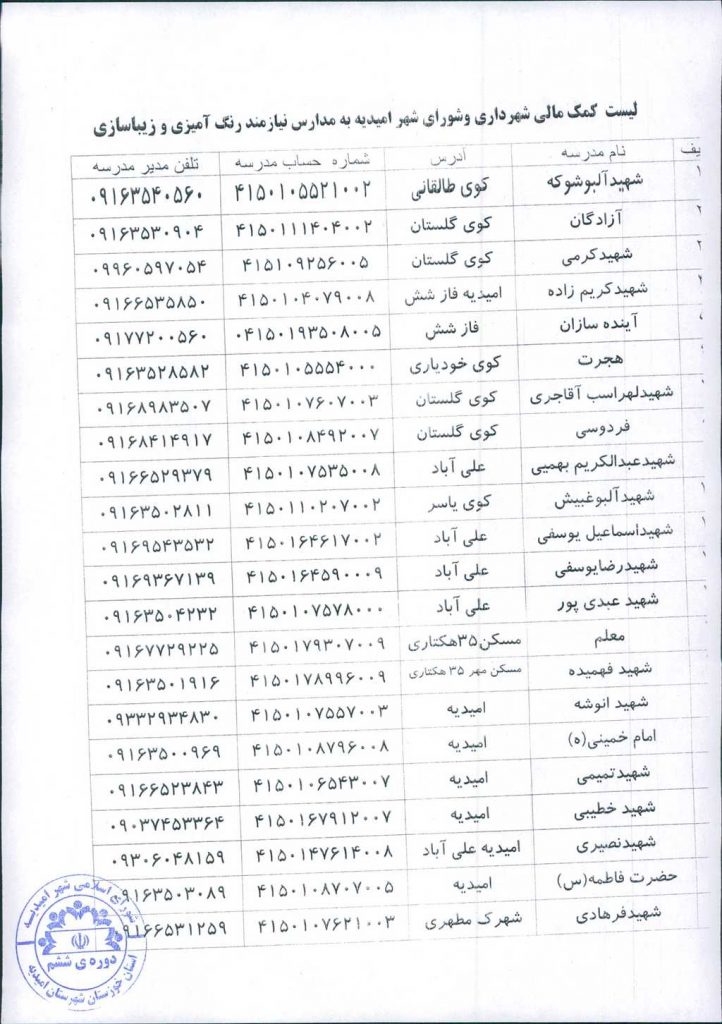 لیست کمک مالی شهرداری وشورای شهر امیدیه به مدارس نیازمند رنگ آمیزی و زیباسازی
یف نام مدرسه آدرس شماره حساب مدرسه تلفن مدیر مدرسه
شهیدآلبوشوکه کوی طالقانی ۴۱۵۰۱۰۵۵۲۱۰۰۲ ۰۹۱۶۳۵۴۰۵۶۰
آزادگان کوی گلستان ۴۱۵۰۱۱۱۴۰۴۰۰۲ ۰۹۱۶۳۵۳۰۹۰۴
شهیدکرمی کوی گلستان ۴۱۵۱۰۹۲۵۶۰۰۵ ۰۹۹۶۰۵۹۷۰۵۴
شهیدکریم زاده امیدیه فاز شش ۴۱۵۰۱۰۴۰۷۹۰۰۸ ۰۹۱۶۶۵۳۵۸۵۰
آینده سازان فاز شش ۰۴۱۵۰۱۹۳۵۰۸۰۰۵ ۰۹۱۷۷۲۰۰۵۶۰
هجرت کوی خودیاری ۴۱۵۰۱۰۵۵۵۴۰۰۰ ۰۹۱۶۳۵۲۸۵۸۲
شهیدلهراسب آقاجری کوی گلستان ۴۱۵۰۱۰۷۶۰۷۰۰۳ ۰۹۱۶۸۹۸۳۵۰۷
فردوسی کوی گلستان ۴۱۵۰۱۰۸۴۹۲۰۰۷ ۰۹۱۶۸۴۱۴۹۱۷
شهیدعبدالکریم بهمیی علی آباد ۴۱۵۰۱۰۷۵۳۵۰۰۸ ۰۹۱۶۶۵۲۹۳۷۹
شهیدآلبوغبیش کوی یاسر ۴۱۵۰۱۱۰۲۰۷۰۰۲ ۰۹۱۶۳۵۰۲۸۱۱
شهیداسماعیل یوسفی علی آباد ۴۱۵۰۱۶۴۶۱۷۰۰۲ ۰۹۱۶۹۵۴۳۵۳۲
شهیدرضایوسفی علی آباد ۴۱۵۰۱۶۴۵۹۰۰۰۹ ۰۹۱۶۹۳۶۷۱۳۹
شهید عبدی پور علی آباد ۴۱۵۰۱۰۷۵۷۸۰۰۰ ۰۹۱۶۳۵۰۴۲۳۲
معلم مسکن۳۵هکتاری ۴۱۵۰۱۷۹۳۰۷۰۰۹ ۰۹۱۶۷۷۲۹۲۲۵
شهید فهمیده مسکن مهر ۳۵ هکتاری ۴۱۵۰۱۷۸۹۹۶۰۰۹ ۰۹۱۶۳۵۰۱۹۱۶
شهید انوشه امیدیه ۴۱۵۰۱۰۷۵۵۷۰۰۳ ۰۹۳۳۲۹۳۴۸۳۰
امام خمینی(ه) امیدیه ۴۱۵۰۱۰۸۷۹۶۰۰۸ ۰۹۱۶۳۵۰۰۹۶۹
شهیدتمیمی امیدیه ۴۱۵۰۱۰۶۵۴۳۰۰۷ ۰۹۱۶۶۵۲۳۸۴۳
شهید خطیبی امیدیه ۴۱۵۰۱۶۷۹۱۲۰۰۷ ۰۹۰۳۷۴۵۳۳۶۴
شهیدنصیری امیدیه علی آباد ۴۱۵۰۱۴۷۶۱۴۰۰۸ ۰۹۳۰۶۰۴۸۱۵۹
حضرت فاطمه(س) امیدیه ۴۱۵۰۱۰۸۷۰۷۰۰۵ ۰۹۱۶۳۵۰۳۰۸۹
شهیدفرهادی شهرک مطهری ۴۱۵۰۱۰۷۶۲۱۰۰۳ ۰۹۱۶۶۵۳۱۲۵۹
شورای اسلامی شهر امیدیه
دوره ی ششم
استان خوزستان شهرستان امیدیه